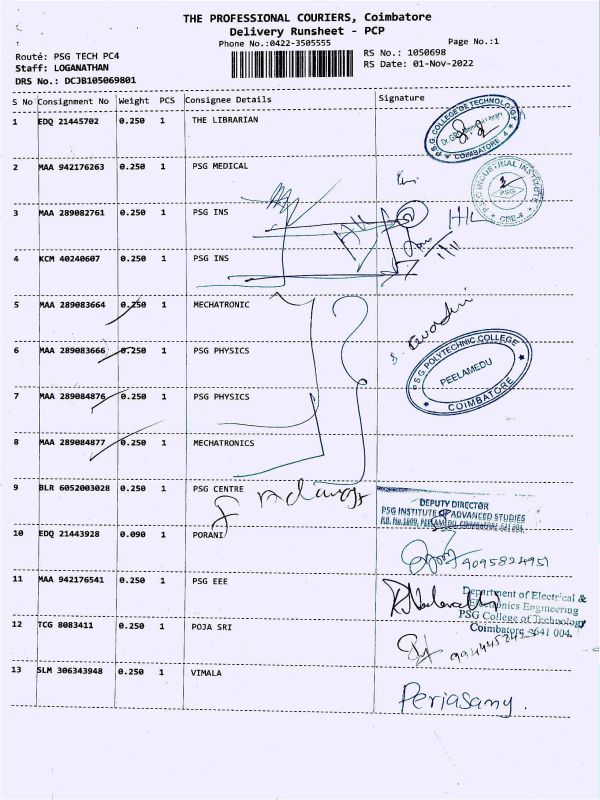 THE PROFESSIONAL COURIERS, Coimbatore
Delivery Runsheet - PCP
Phone No.:0422-3505555
Page No.:1
Routé: PSG TECH PC4
RS No.: 1050698
Staff: LOGANATHAN
RS Date: 01-Nov-2022
DRS No.: DCJB105069801
S No Consignment No Weight PCS Consignee Details Signature
1 EDQ 21445702 0.250 1 THE LIBRARIAN
P.S.G. COLLEGE OF TECHNOLOGY
COIMBATORE - 4
2 MAA 942176263 0.250 1 PSG MEDICAL
PSG INDUSTRIAL INSTITUTE
PSG
CBE-4
3 MAA 289082761 0.250 1 PSG INS
4 KCM 40240607 0.250 1 PSG INS
5 MAA 289083664 0.250 1 MECHATRONIC
6 MAA 289083666 0.250 1 PSG PHYSICS
PSG POLYTECHNIC COLLEGE
PEELAMEDU
COIMBATORE
7 MAA 289084876 0.250 1 PSG PHYSICS
8 MAA 289084877 0.250 1 MECHATRONICS
9 BLR 6052003028 0.250 1 PSG CENTRE
DEPUTY DIRECTOR
PSG INSTITUTE OF ADVANCED STUDIES
10 EDQ 21443928 0.090 1 PORANI
9095824951
11 MAA 942176541 0.250 1 PSG EEE
Department of Electrical &
Electronics Engineering
PSG College of Technology
Coimbatore - 641 004.
12 TCG 8083411 0.250 1 POJA SRI
13 SLM 306343948 0.250 1 VIMALA
Periasamy.